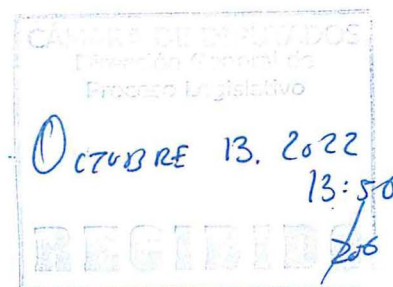 CÁMARA DE DIPUTADOS
Dirección General de
Proceso Legislativo
OCTUBRE 13. 2022
13:50
RECIBIDO